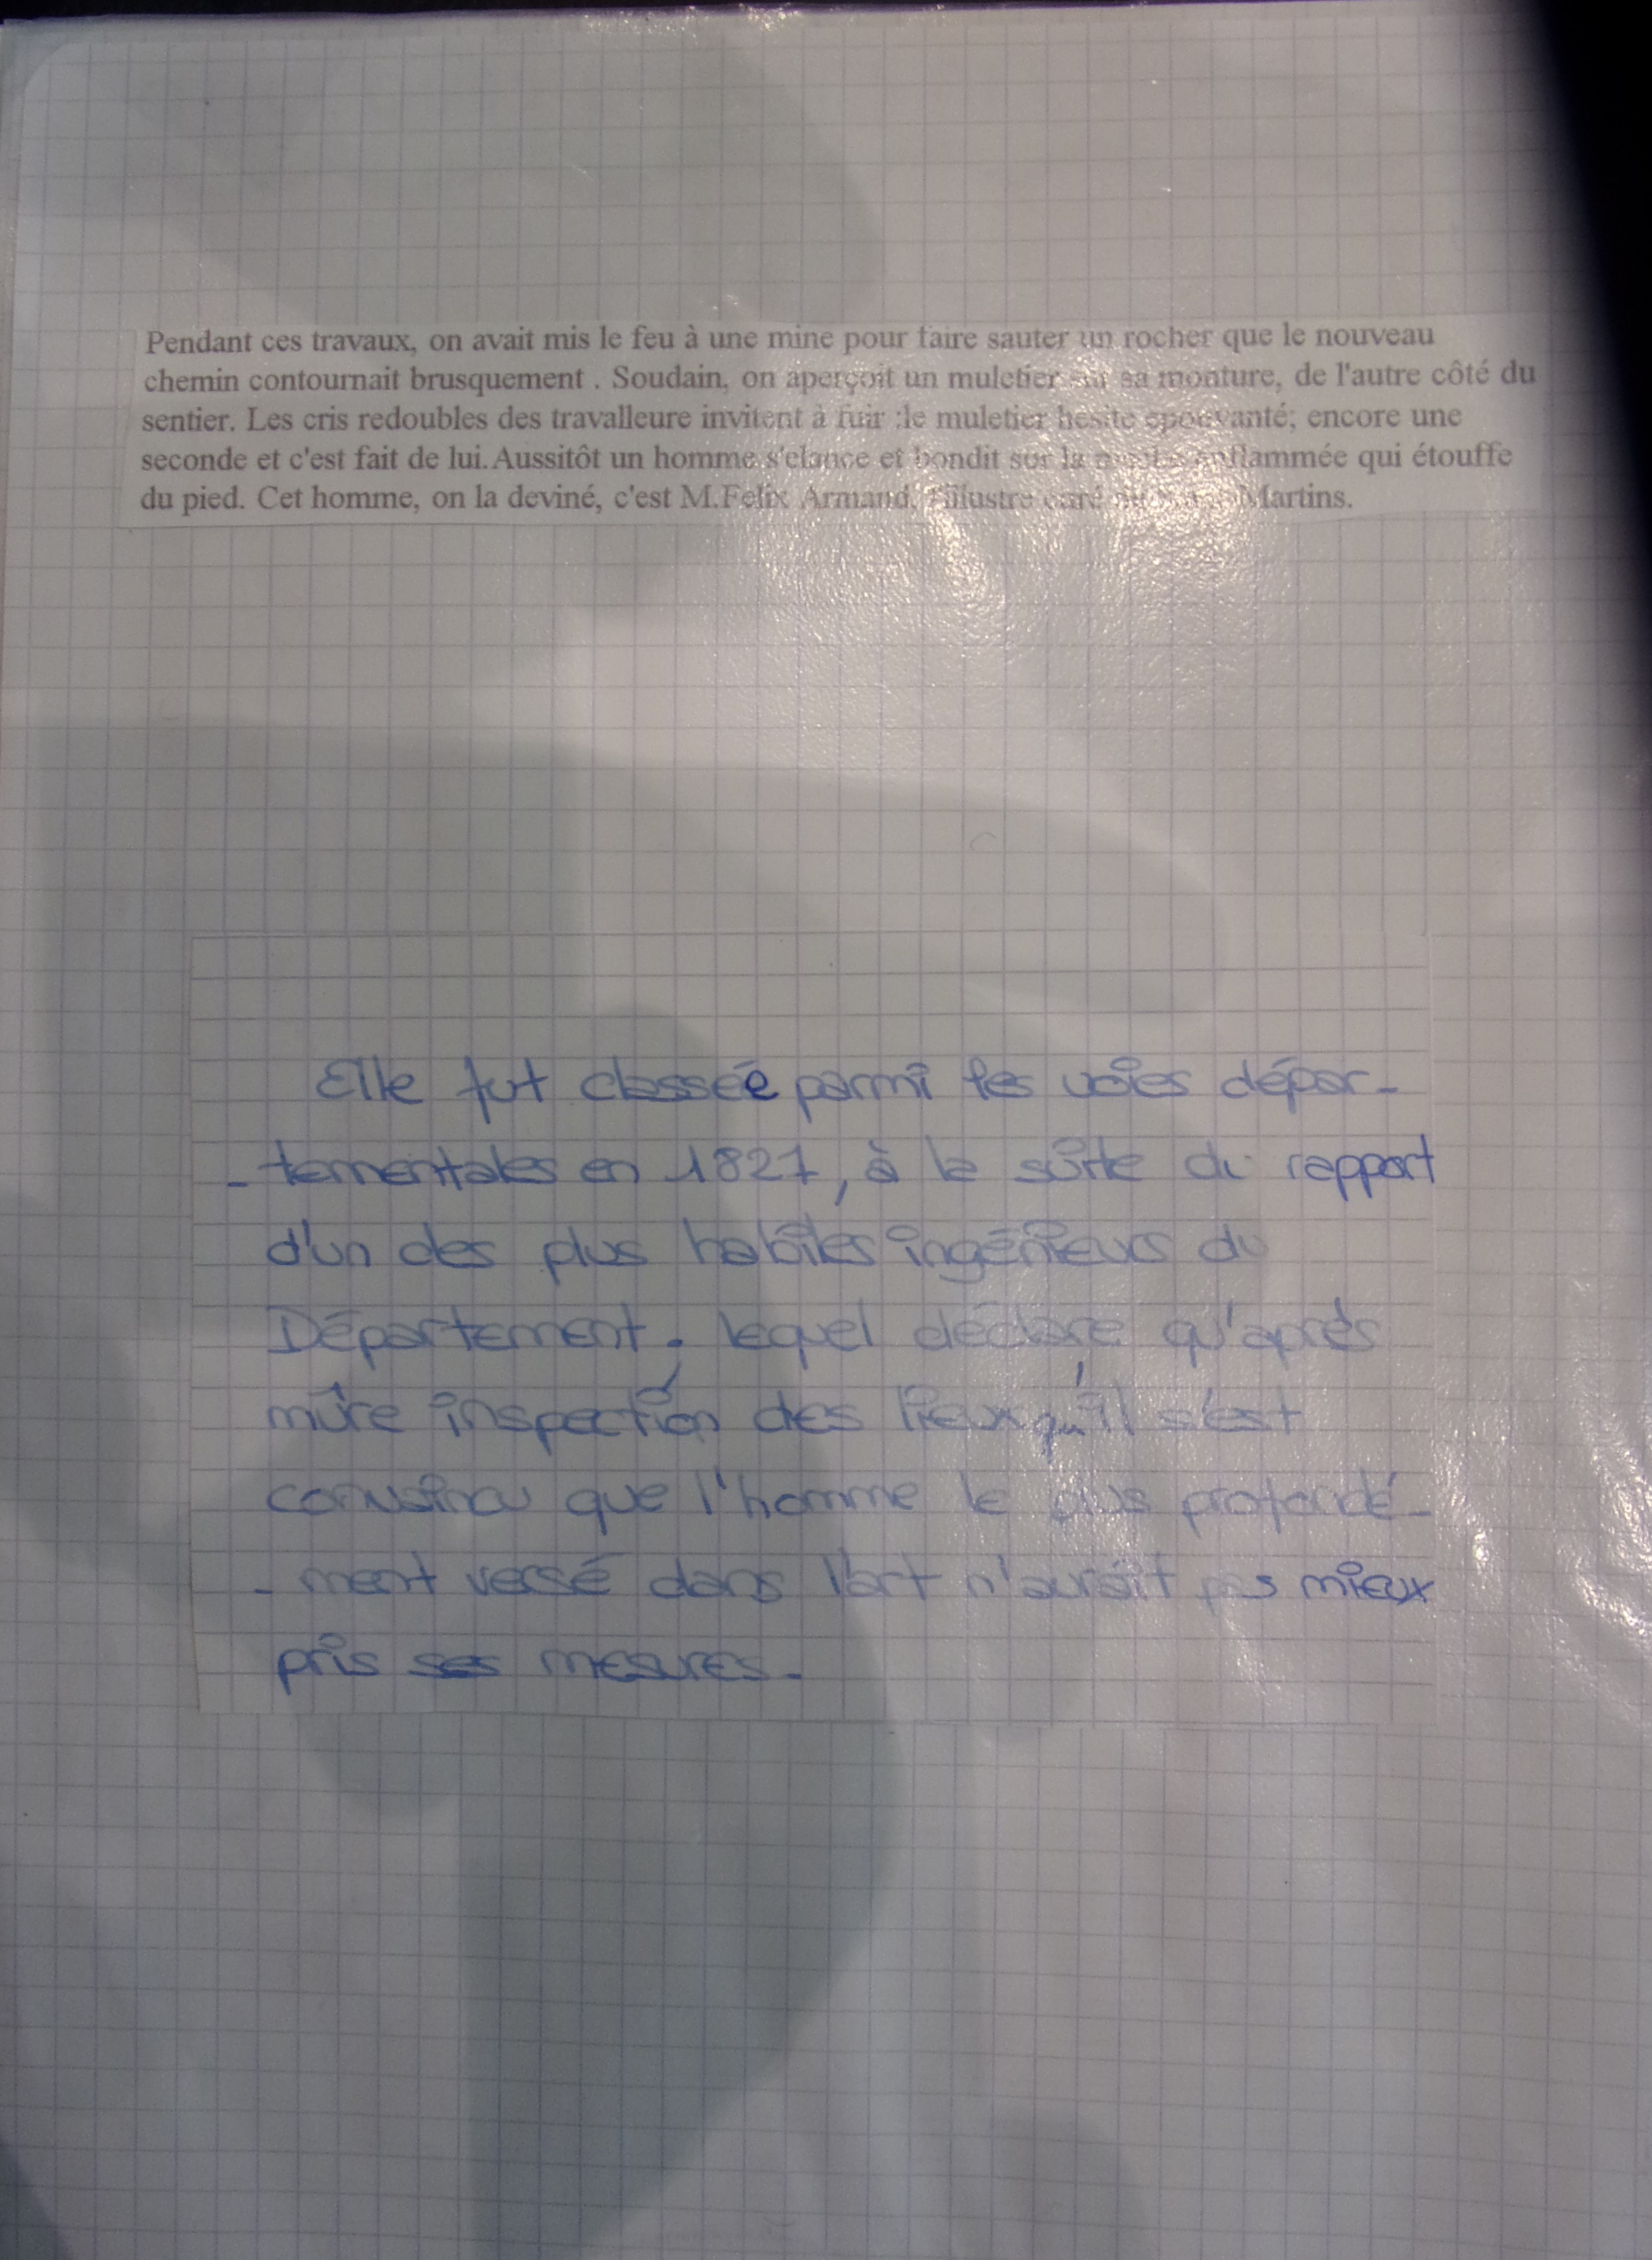 Pendant ces travaux, on avait mis le feu à une mine pour faire sauter un rocher que le nouveau
chemin contournait brusquement . Soudain, on aperçoit un muletier sur sa monture, de l'autre côté du
sentier. Les cris redoubles des travalleure invitent à fuir ;le muletier hesite epouvanté; encore une
seconde et c'est fait de lui. Aussitôt un homme s'elance et bondit sur la enflammée qui étouffe
du pied. Cet homme, on la deviné, c'est M.Felix Armand, l'illustre curé Martins.
Elle fut classée parmi les voies dépar-
- tementales en 1827, à la suite du rapport
d'un des plus habiles ingénieurs du
Département. lequel déclare qu'après
mûre inspection des lieux qu'il s'est
convaincu que l'homme le plus profondé-
- ment versé dans l'art n'aurait pas mieux
pris ses mesures.